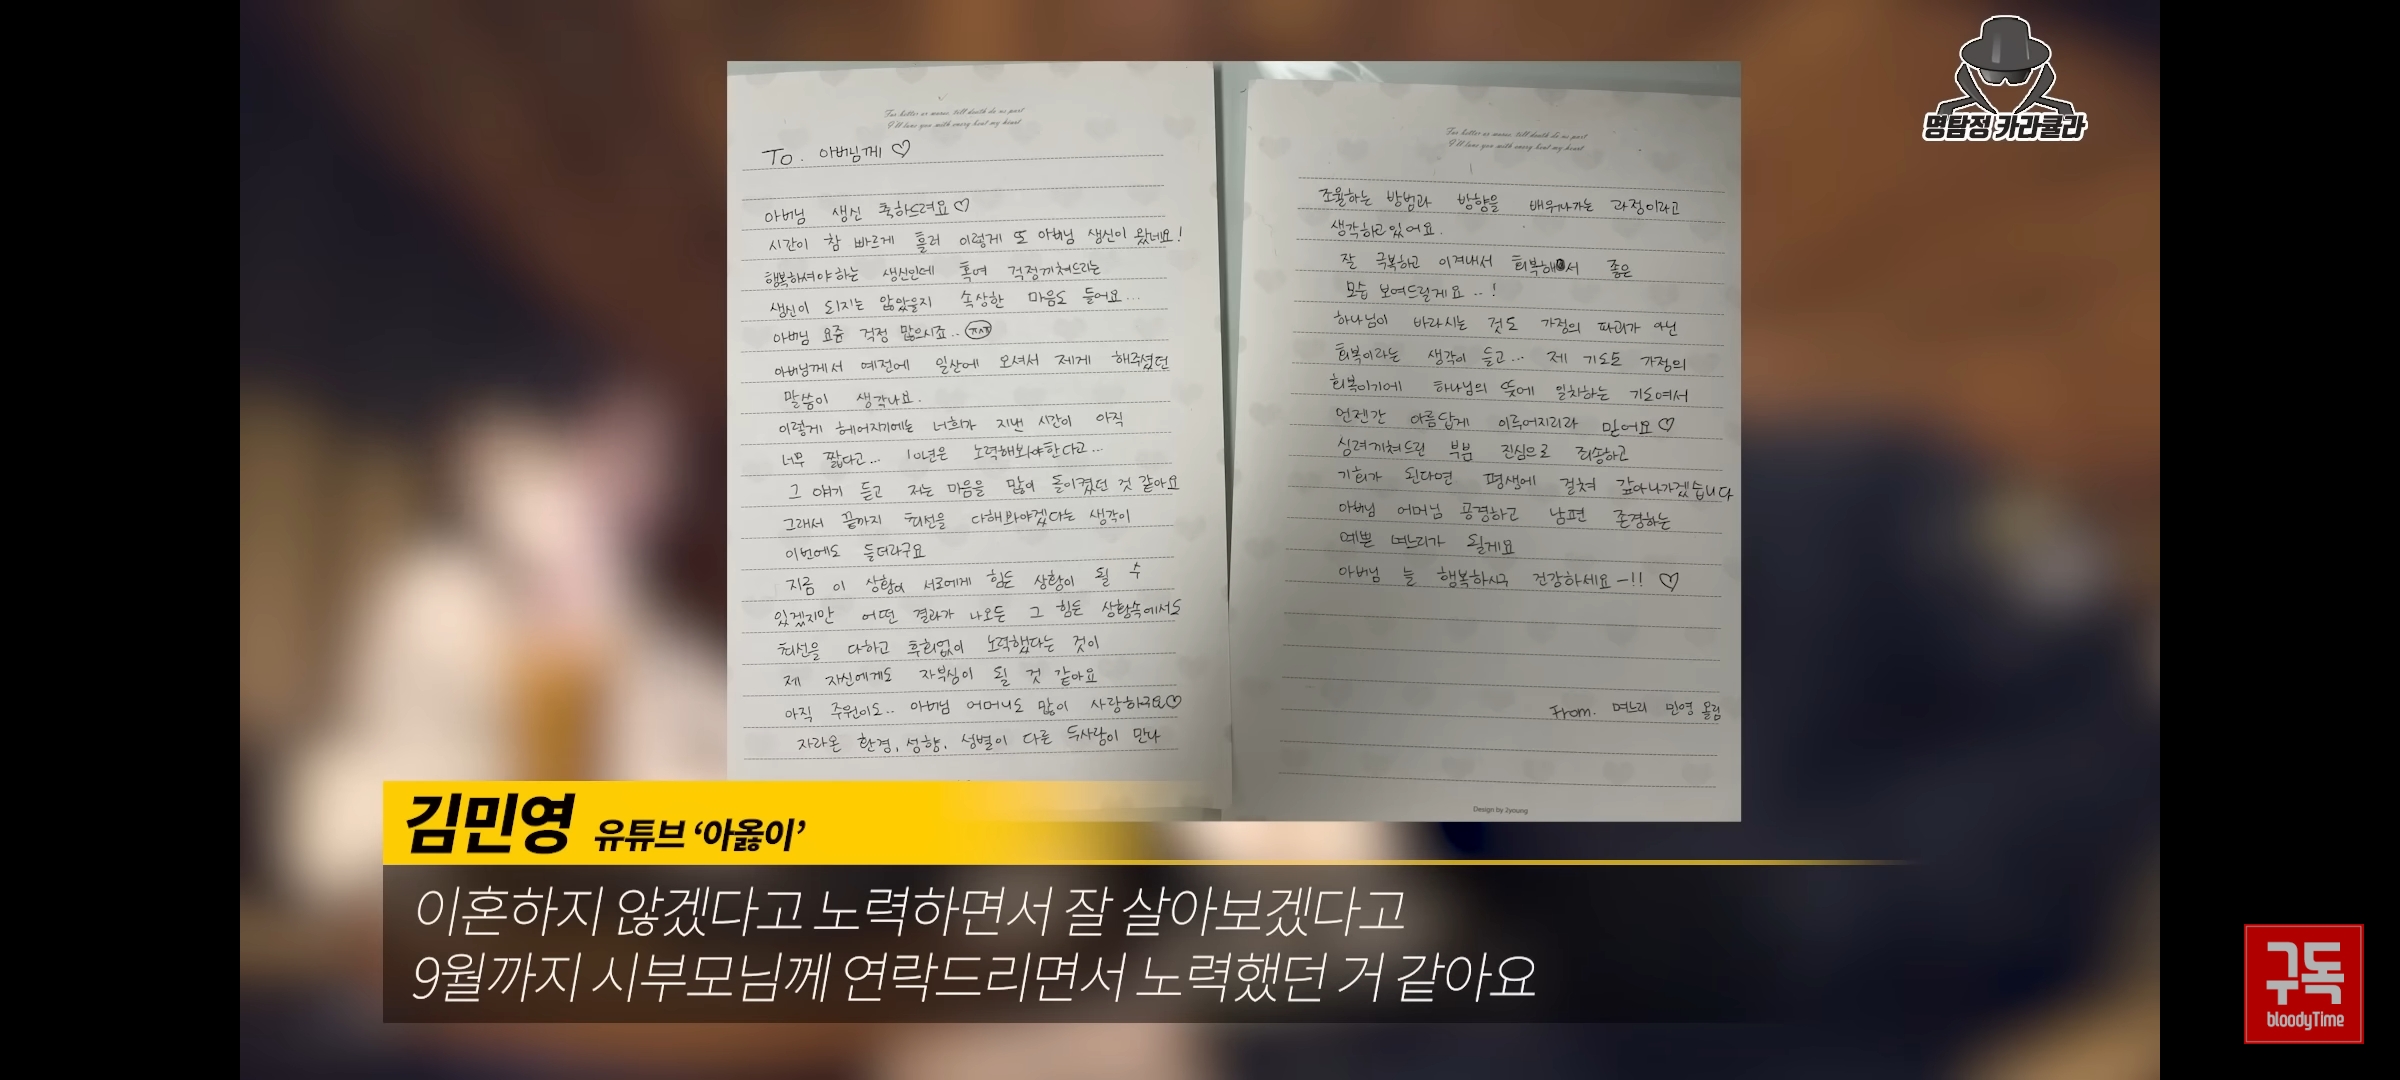 명탐정 카라큘라
For better or worse, till death do us part
I'll love you with every beat my heart
To. 아버님께 ♡
아버님 생신 축하드려요 ♡
시간이 참 빠르게 흘러 이렇게 또 아버님 생신이 왔네요!
행복하셔야하는 생신인데 혹여 걱정끼쳐드리는
생신이 되지는 않았을지 속상한 마음도 들어요...
아버님 요즘 걱정 많으시죠..
아버님께서 예전에 일산에 오셔서 제게 해주셨던
말씀이 생각나요.
이렇게 헤어지기에는 너희가 지낸 시간이 아직
너무 짧다고... 10년은 노력해봐야한다고...
그 얘기 듣고 저는 마음을 많이 돌이켰던 것 같아요
그래서 끝까지 최선을 다해봐야겠다는 생각이
이번에도 들더라구요
지금 이 상황이 서로에게 힘든 상황이 될 수
있겠지만 어떤 결과가 나오든 그 힘든 상황속에서도
최선을 다하고 후회없이 노력했다는 것이
제 자신에게도 자부심이 될 것 같아요
아직 주원이도.. 아버님 어머니도 많이 사랑하구요♡
자라온 환경, 성향, 성별이 다른 두사람이 만나
For better or worse, till death do us part
I'll love you with every beat my heart
조율하는 방법과 방향을 배워나가는 과정이라고
생각하고 있어요.
잘 극복하고 이겨내서 회복해서 좋은
모습 보여드릴게요..!
하나님이 바라시는 것도 가정의 파괴가 아닌
회복이라는 생각이 들고... 제 기도도 가정의
회복이기에 하나님의 뜻에 일치하는 기도여서
언젠간 아름답게 이루어지리라 믿어요♡
심려끼쳐드린 부분 진심으로 죄송하고
기회가 된다면 평생에 걸쳐 갚아나가겠습니다
아버님 어머님 공경하고 남편 존경하는
예쁜 며느리가 될게요
아버님 늘 행복하시구 건강하세요-!! ♡
From. 며느리 민영 올림
Design by 2young
김민영 유튜브 ‘아옳이’
이혼하지 않겠다고 노력하면서 잘 살아보겠다고
9월까지 시부모님께 연락드리면서 노력했던 거 같아요
구독
bloodyTime